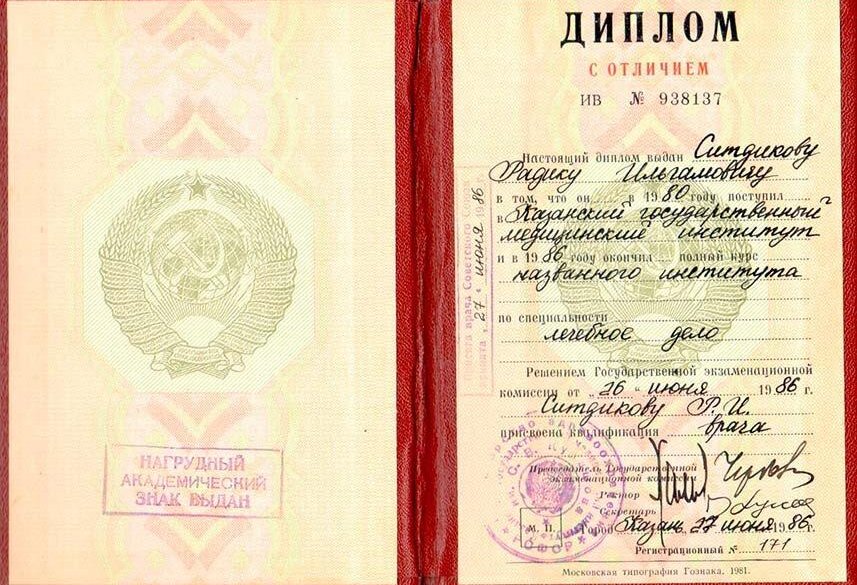 НАГРУДНЫЙ
АКАДЕМИЧЕСКИЙ
ЗНАК ВЫДАН
ДИПЛОМ
С ОТЛИЧИЕМ
ИВ № 938137
Настоящий диплом выдан Ситдикову
Радику Ильгамовичу
в том, что он в 1980 году поступил
в Казанский государственный
медицинский институт
и в 1986 году окончил полный курс
названного института
по специальности
лечебное дело
Решением Государственной экзаменационной
комиссии от „26" июня 1986 г.
Ситдикову Р.И.
присвоена квалификация врача
Председатель Государственной
экзаменационной комиссии
Ректор
Секретарь
М. П. Город Казань 27 июня 1986
Регистрационный № 171
Московская типография Гознака. 1981.
врача Советского
„27" июня 1986